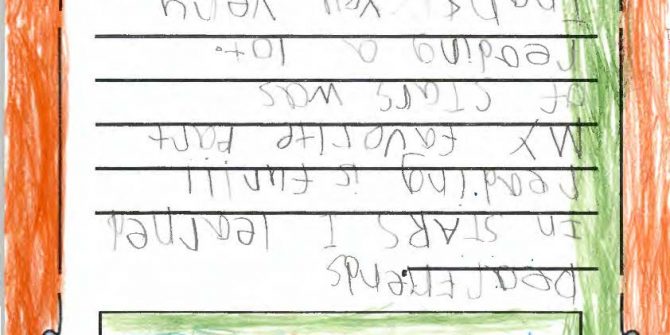 Dear Friends
In STARS I learned
reading is fun!!!
My favorite part
of stars was
reading a lot.
Thank you very